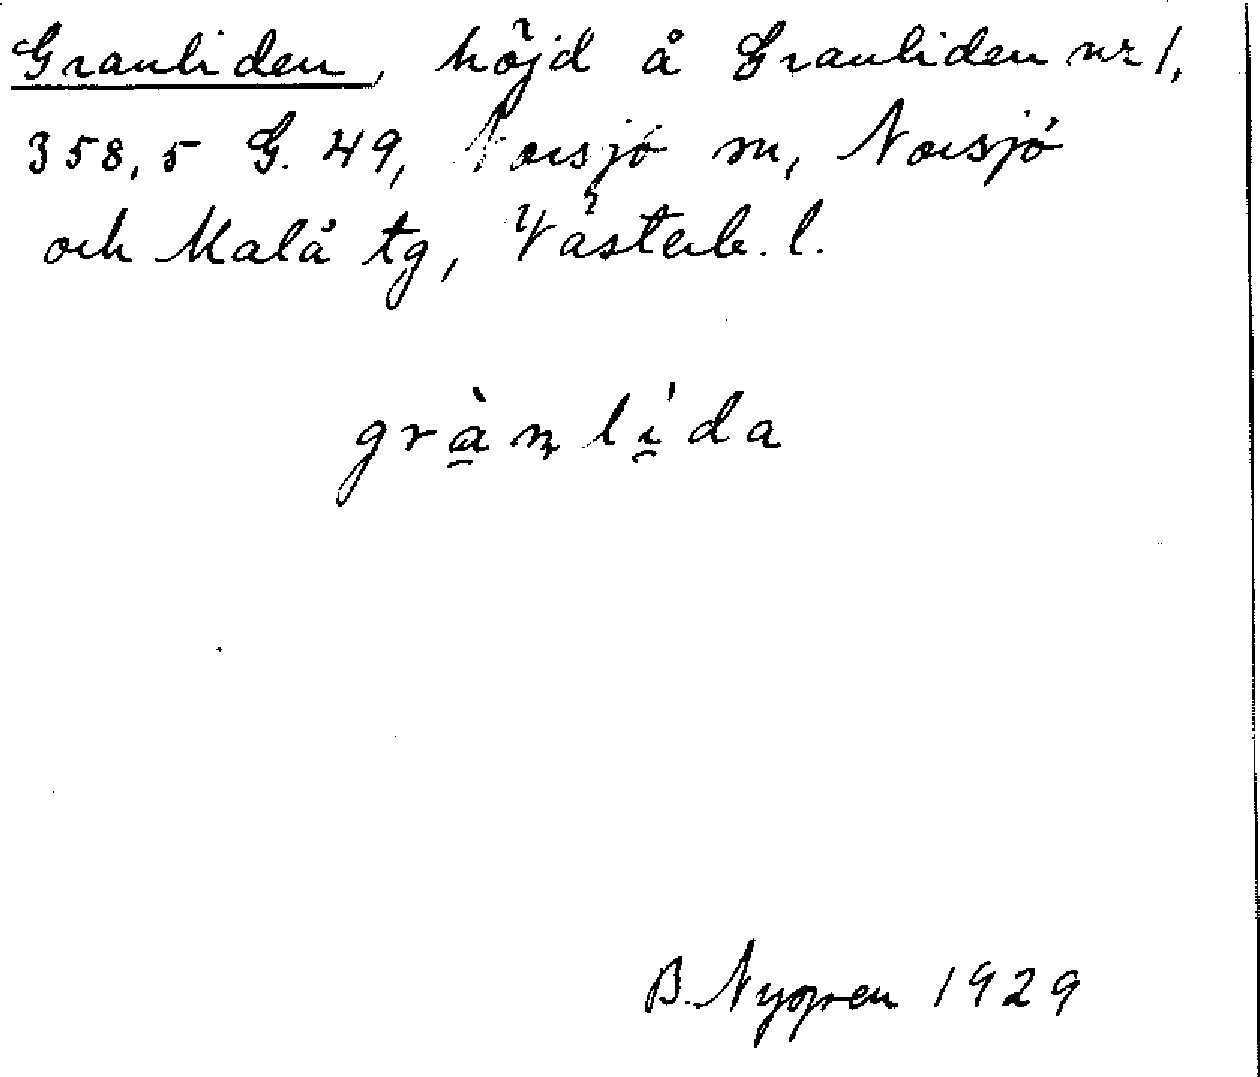 Granliden, höjd å Granliden nr 1,
358,5 G. 49, Norsjö sn, Norsjö
och Malå tg, Västerb. l.
grà̱n lí̱da
B. Nygren 1929